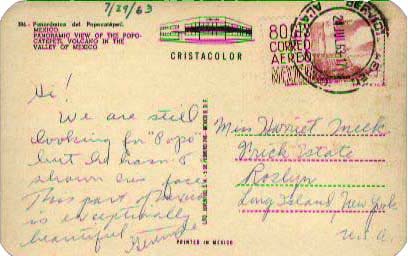 7/29/63
386.- Panorámica del Popocatépetl.
MEXICO.
PANORAMIC VIEW OF THE POPO-
CATEPETL VOLCANO IN THE
VALLEY OF MEXICO
CRISTACOLOR
80
CORREO
AEREO
Hi!
We are still
looking for "Popo"
but he hasn't
shown his face
This part of Mexico
is exceptionally
beautiful
Miss Harriet Meek
Frick Estate
Roslyn
Long Island, New York
U.S.A.
PRINTED IN MEXICO